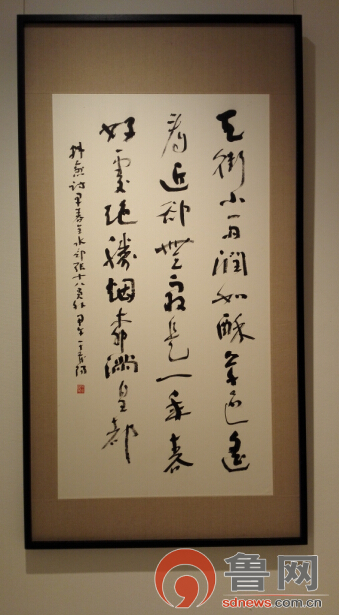 天街小雨润如酥草色遥
看近却无最是一年春
好处绝胜烟柳满皇都
韩愈诗早春呈水部张十八员外
鲁网
sdnews.com.cn